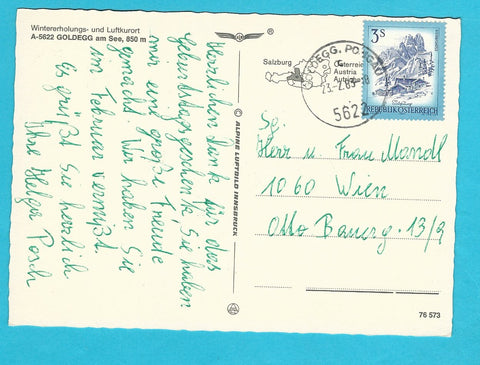 Wintererholungs- und Luftkurort
A-5622 GOLDEGG am See, 850 m
Herzlichen Dank für das
Geburtstagsgeschenk, Sie haben
mir eine große Freude
gemacht. Wir haben Sie
im Februar vermißt.
Es grüßt Sie herzlich
Ihre Helga Posch
© ALPINE LUFTBILD INNSBRUCK
Salzburg
GOLDEGG, PONGAU
Österreich
Austria
Autriche
23.-2.83-8
5622
3S
REPUBLIK ÖSTERREICH
Herr u Frau Mandl
1060 Wien
Otto Bauerg. 13/9
76 573